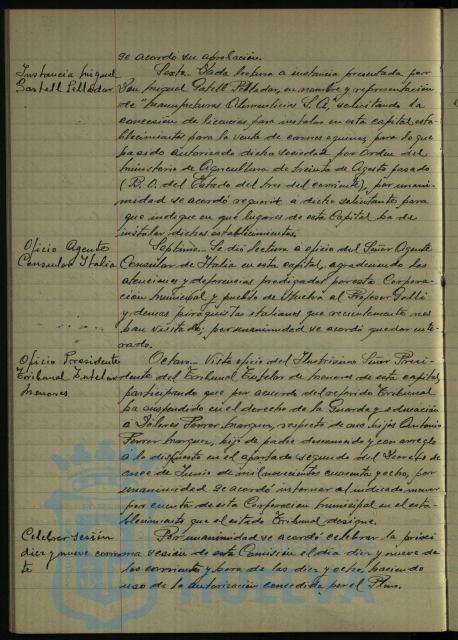 se acordó su aprobación.
Instancia Miguel
Gastell Pellader.
Sexto.- Dada lectura a instancia presentada por
Don Miguel Gatell Pellader, en nombre y representación
de "Manufacturas Alimenticias S. A." solicitando la
concesión de licencias para instalar en esta capital, esta-
blecimientos para la venta de carnes equinas, para lo que
ha sido autorizado dicha sociedad por Orden del
Ministerio de Agricultura de treinta de Agosto pasado
(B. O. del Estado del tres del corriente), por unani-
midad se acordó requerir a dicho solicitante para
que indique en qué lugares de esta Capital ha de
instalar dichos establecimientos.
Oficio Agente
Consular Italia
Septimo.- Se dió lectura a oficio del Señor Agente
Consular de Italia en esta capital, agradeciendo las
atenciones y deferencias prodigadas por esta Corpora-
ción Municipal y pueblo de Huelva al Profesor Galli
y demas italianos que recientemente nos
han visitado; por unanimidad se acordó quedar ente-
rado.
Oficio Presidente
Tribunal Tutelar
Menores
Octavo.- Visto oficio del Ilustrisimo Señor Presi-
dente del Tribunal Tutelar de Menores de esta capital,
participando que por acuerdo del referido Tribunal
ha suspendido en el derecho de la Guarda y educación
a Dolores Ferrer Marquez, respecto de sus hijos Antonio
Ferrer Marquez, hijo de padre desconocido y con arreglo
a lo dispuesto en el apartado segundo del Decreto de
once de Junio de mil novecientos cuarenta y ocho, por
unanimidad se acordó internar al indicado menor
por cuenta de esta Corporación Municipal en el esta-
blecimiento que el citado Tribunal designe.
Celebrar sesión
diez y nueve corrien
te
Por unanimidad se acordó celebrar la próxi
ma sesión de esta Comisión el día diez y nueve de
los corrientes y hora de las diez y ocho, haciendo
uso de la autorización concedida por el Pleno.
HUELVA